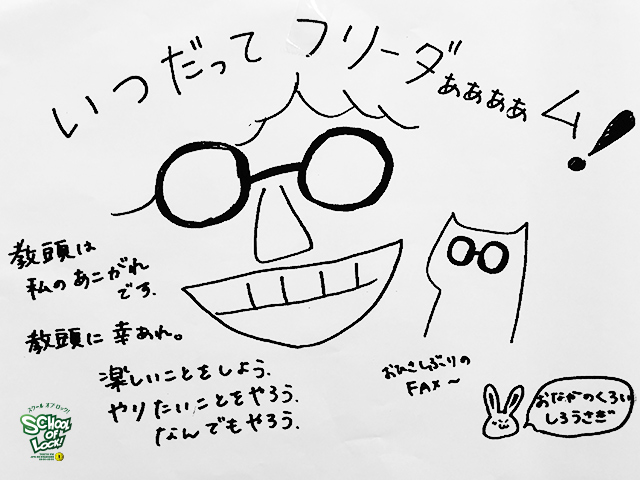 いつだってフリーダぁぁぁぁム!
教頭は
私のあこがれ
です.
教頭に幸あれ。
楽しいことをしよう.
やりたいことをやろう.
なんでもやろう.
おひさしぶりの
FAX〜
おなかのくろい
しろうさぎ
スクール オブ ロック!
SCHOOL
OF
LOCK!